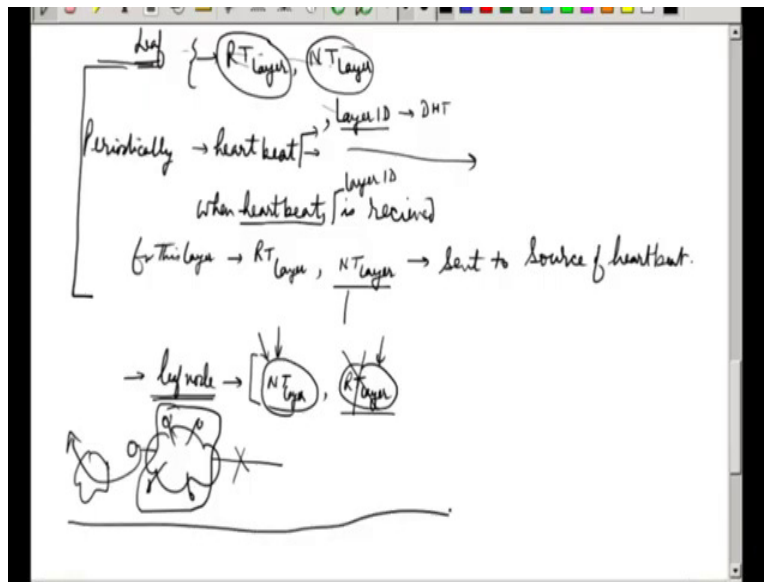 Leaf → RT Layer, NT Layer
, Layer ID → DHT
Periodically → heart beat →
Layer ID
when heartbeat, is recieved
for this layer → RT Layer, NT Layer → Sent to Source of heartbeat.
→ leaf node → NT Layer, RT Layer